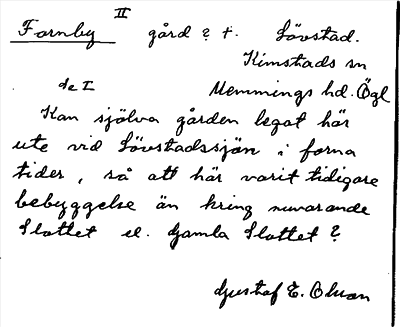 II
Fornby gård? t. Lövstad.
Kimstads sn
se I Memmings hd. Ögl
Kan själva gården legat här
ute vid Lövstadssjön i forna
tider, så att här varit tidigare
bebyggelse än kring nuvarande
Slottet el. Gamla Slottet?
Gustaf E. Olsson